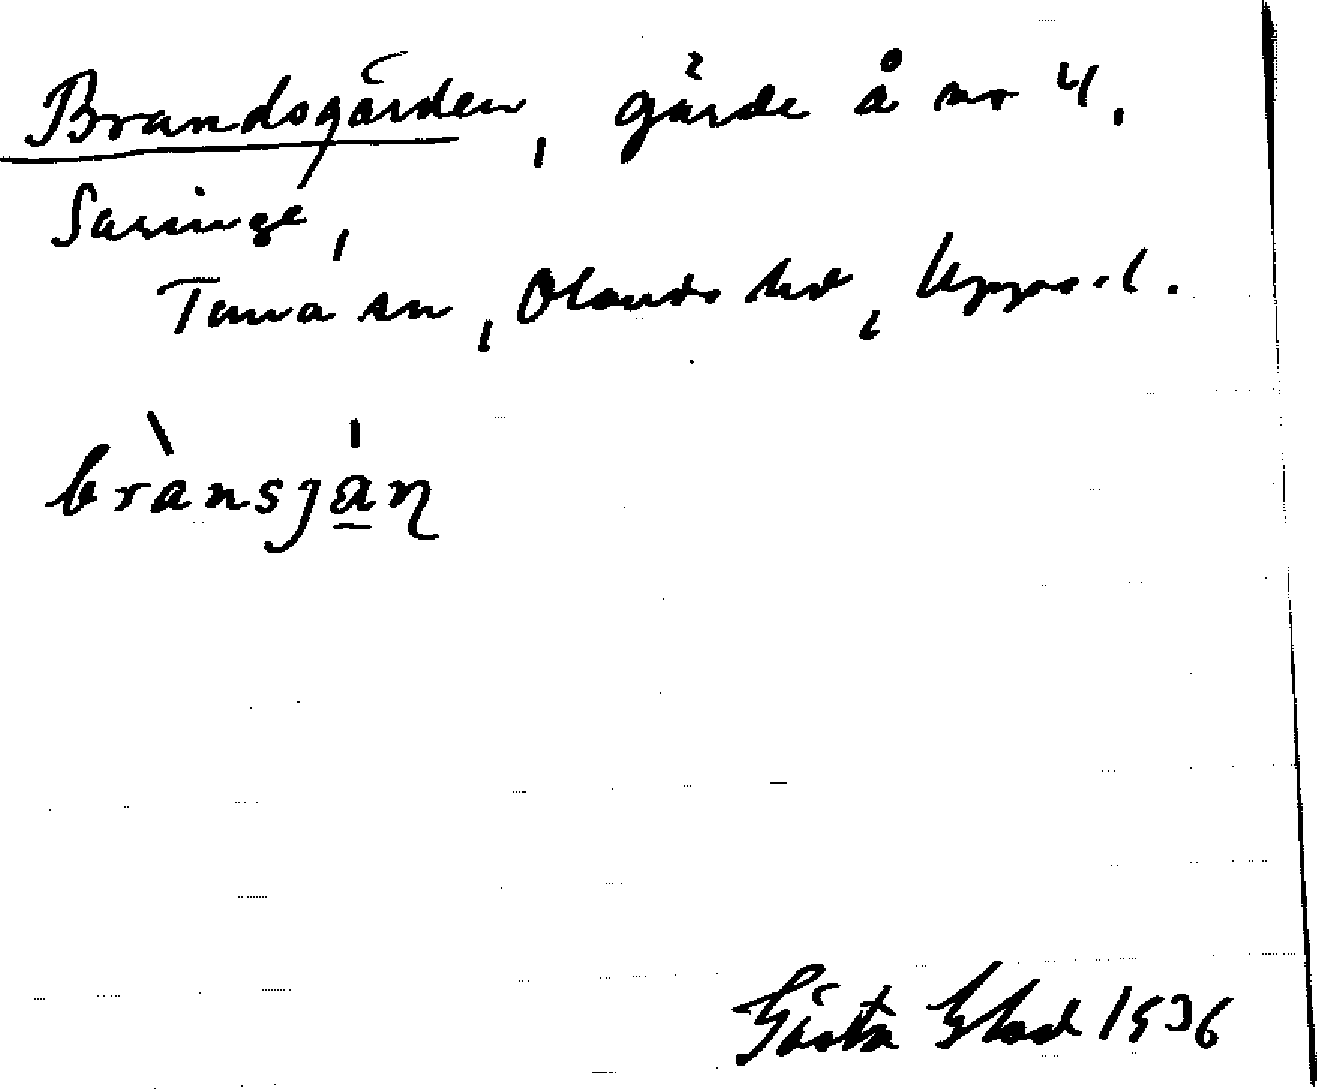 Brandsgärden, gärde å nr 4,
Sassinge,
Tuna sn, Olands hd, Upps. l.
brànsjá̱ɳ
Gösta 1936